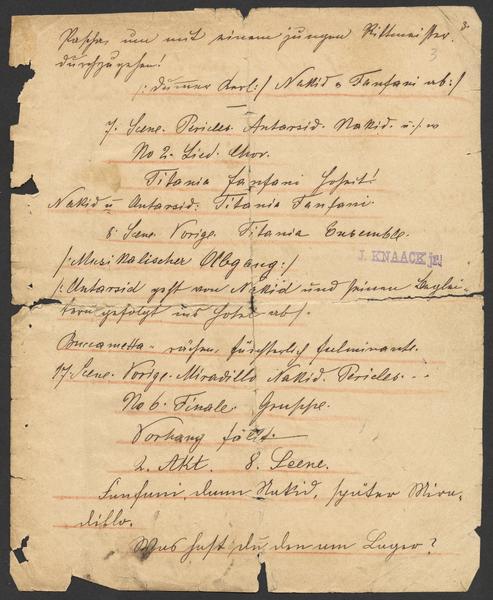 3.
Paschas um mit einem jungen Rittmeister
3
durchzugehen!
/: dummer Kerl :/ Nakid u Fanfani ab :/
7. Scene. Pericles. Antarsid. Nakid. u. s. w
No 2. Lied. Chor.
Titania Fanfani Hoheit!
Nakid u Antarsid. Titania Fanfani
8. Scene. Vorige. Titania Ensemble.
/: Musikalischer Abgang :/
J. KNAACK jr.
/: Antarsid geht von Nakid und seinen Beglei-
tern gefolgt ins Hotel ab /.
rächen, fürchterlich fulminant.
17. Scene. Vorige. Miradillo Nakid. Pericles. - -
No 6. Finale. Gruppe.
Vorhang fällt.
2. Akt. 8. Scene.
Fanfani, dann Nakid, später Mira-
dillo.
Was hast du den am Lager?